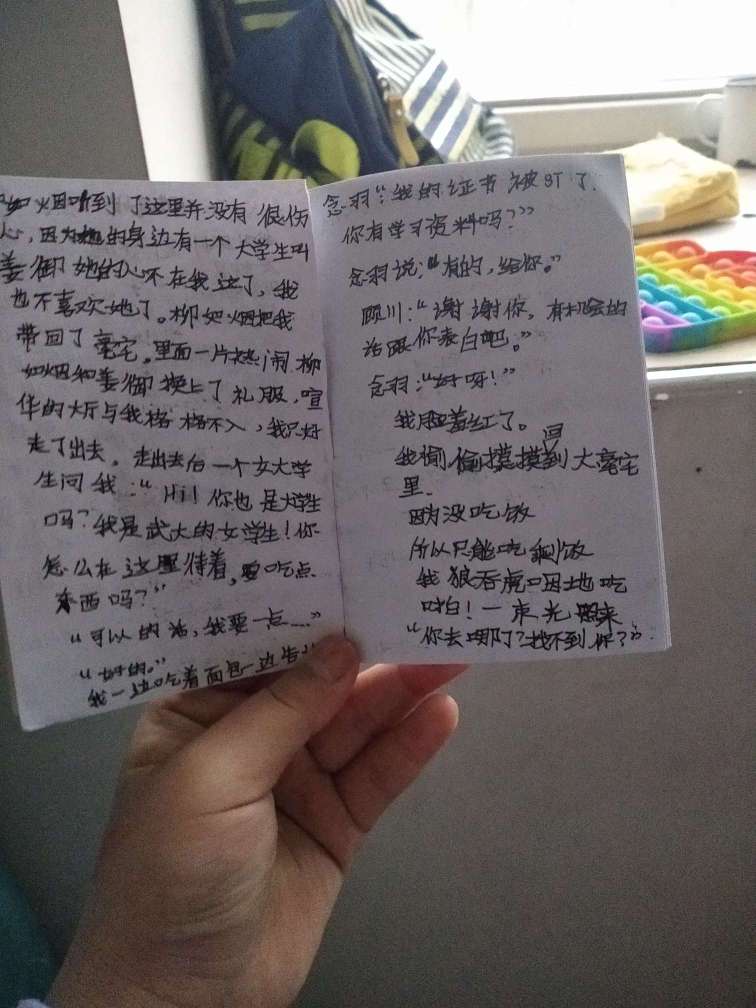 如烟听到了这里并没有很伤
心，因为她的身边有一个大学生叫
姜御她的心不在我这了，我
也不喜欢她了。柳如烟把我
带回了豪宅。里面一片热闹.柳
如烟和姜御换上了礼服，喧
华的大厅与我格格不入，我只好
走了出去。走出去后一个女大学
生问我：“Hi！你也是大学生
吗？我是武大的女学生！你
怎么在这里待着，要吃点
东西吗？”
“可以的话，我要一点……”
“好的。”
我一边吃着面包一边告
念羽：“我的证书被盯了.
你有学习资料吗？”
念羽说：“有的，给你。”
顾川：“谢谢你，有机会的
话跟你表白吧。”
念羽：“好呀！”
我脸羞红了。
我偷偷摸摸回到大豪宅
里.
因为没吃饭
所以只能吃剩饭
我狼吞虎咽地吃
啪！一束光照来
“你去哪了？找不到你？”